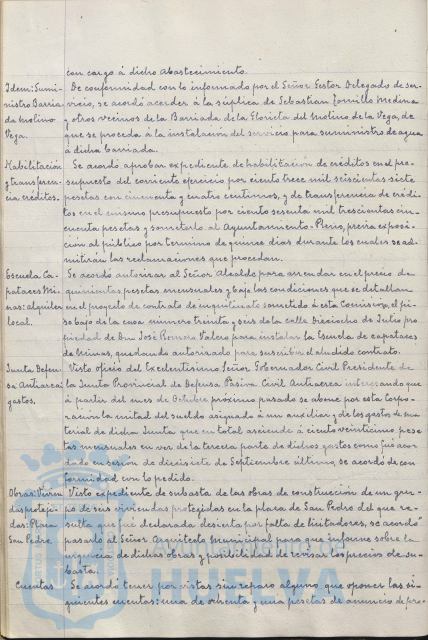 con cargo á dicho abastecimiento.
Idem: Sumi- De conformidad con lo informado por el Señor Gestor Delegado de ser-
nistro Barria vicio, se acordó acceder á la súplica de Sebastian Jornillo Medina
da Molino y otros vecinos de la Barriada de la Glorieta del Molino de la Vega, de
Vega. que se proceda á la instalación del servicio para suministro de agua
á dicha barriada.
Habilitación Se acordó aprobar expediente de habilitación de créditos en el pre-
y transferen- supuesto del corriente ejercicio por ciento trece mil seiscientas siete
cia créditos. pesetas con cincuenta y cuatro centimos, y de transferencia de crédi-
tos en el mismo presupuesto por ciento sesenta mil trescientas cin-
cuenta pesetas y someterlo al Ayuntamiento-Pleno, previa exposi-
ción al público por termino de quince dias durante los cuales se ad-
mitirán las reclamaciones que procedan.
Escuela Ca- Se acordó autorizar al Señor Alcalde para arrendar en el precio de
pataces Mi- quinientas pesetas mensuales y bajo las condiciones que se detallan
nas: alquiler en el proyecto de contrato de inquilinato sometido á esta Comision, el pi-
local. so bajo de la casa número treinta y seis de la calle Dieciocho de Julio pro
piedad de Don José Romero Valero para instalar la Escuela de capataces
de Minas, quedando autorizado para suscribir el aludido contrato.
Junta Defen Visto oficio del Excelentisimo Señor Gobernador Civil Presidente de
sa Antiaerea: la Junta Provincial de Defensa Pasiva Civil Antiaerea interesando que
gastos. á partir del mes de Octubre próximo pasado se abone por esta Corpo-
ración la mitad del sueldo asignado á un auxiliar y de los gastos de ma
terial de dicha Junta que en total asciende á ciento veinticinco pese
tas mensuales en vez de la tercera parte de dichos gastos como fué acor
dado en sesión de diecisiete de Septiembre último, se acordó de con
formidad con lo pedido.
Obras: Vivien Visto expediente de subasta de las obras de construcción de un gru-
das protegi- po de seis viviendas protegidas en la plaza de San Pedro del que re-
das: Plaza sulta que fué declarada desierta por falta de licitadores, se acordó
San Pedro. pasarlo al Señor Arquitecto Municipal para que informe sobre la
urgencia de dichas obras y posibilidad de revisar los precios de su-
basta.
Cuentas Se acordó tener por vistas sin reparo alguno que oponer las si-
guientes cuentas: una de ochenta y una pesetas de anuncio de pre-
HUELVA